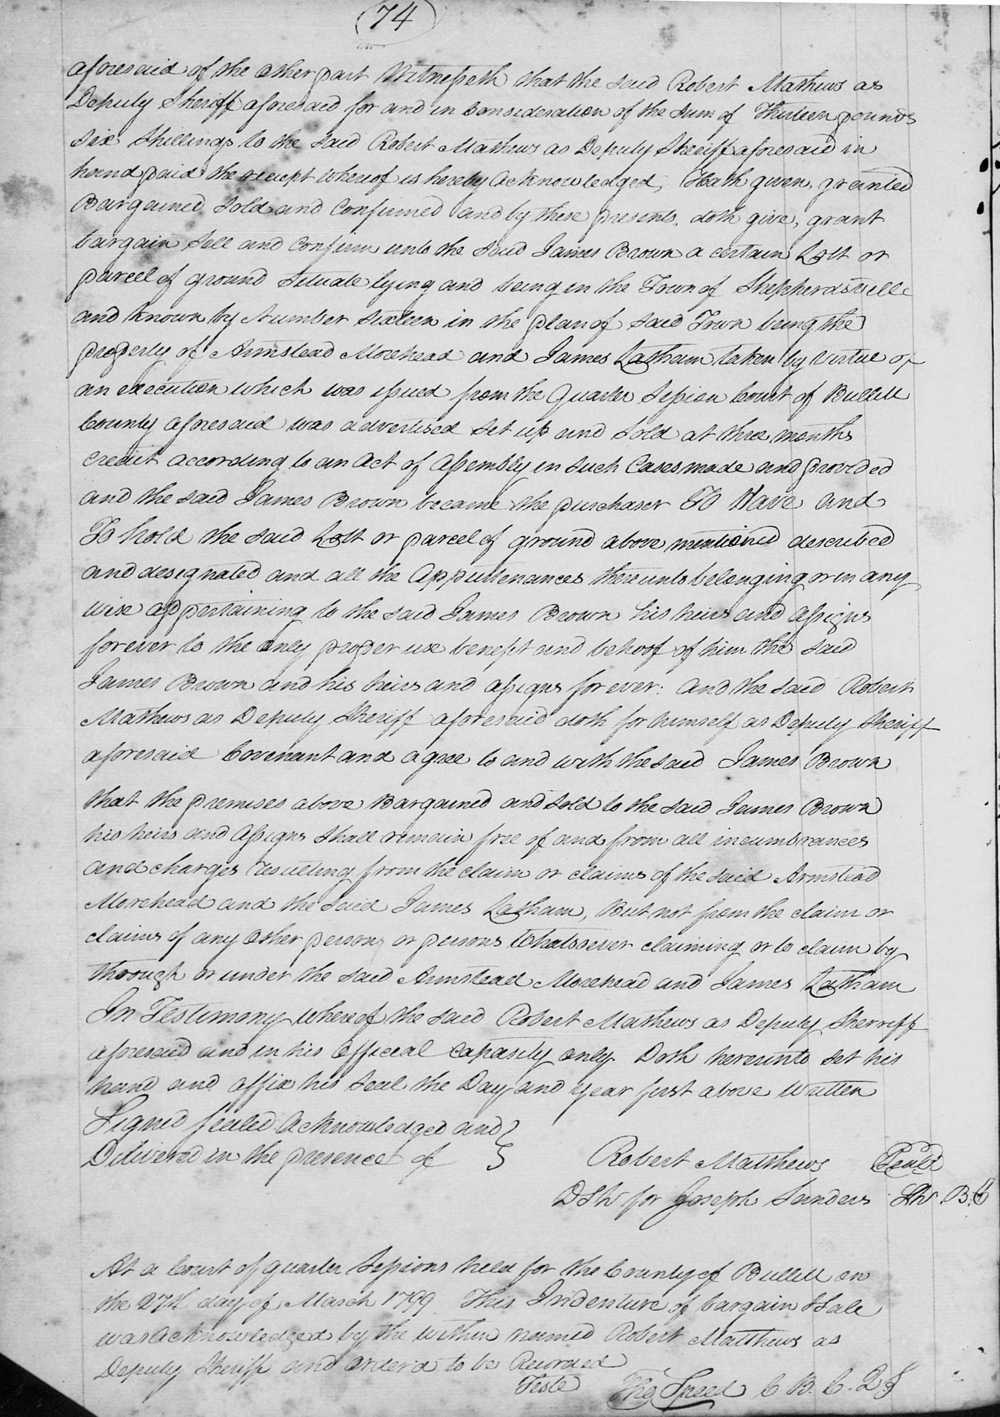 74
aforesaid of the other part Witnesseth that the said Robert Mathews as
Deputy Sheriff aforesaid for and in Consideration of the Sum of Thirteen pounds
Six Shillings to the Said Robert Mathews as Deputy Sheriff aforesaid in
hand paid the receipt whereof is hereby acknowledged, Hath given, granted
Bargained Sold and Confirmed and by these presents, doth give, grant
bargain Sell and Confirm unto the Said James Brown a certain Lott or
parcel of ground Situate lying and being in the Town of Shepherdsville
and known by Number Sixteen in the plan of Said Town being the
property of Armstead Morehead and James Latham taken by Virtue of
an execution which was issued from the Quarter Session Court of Bullitt
County aforesaid was advertised Set up and Sold at three months
credit according to an Act of Assembly in Such Cases made and provided
and the said James Brown became the purchaser To Have and
To hold the said Lott or parcel of ground above mentioned described
and designated and all the Appurtenances thereunto belonging or in any
wise appertaining to the said James Brown his heirs and assigns
forever to the only proper use benefit and behoof of him the said
James Brown and his heirs and assigns for ever: and the said Robert
Mathews as Deputy Sheriff aforesaid doth for himself as Deputy Sheriff
aforesaid Covenant and agree to and with the said James Brown
that the premises above Bargained and Sold to the said James Brown
his heirs and Assigns Shall remain free of and from all incumbrances
and charges resulting from the claim or claims of the said Armstead
Morehead and the Said James Latham, But not from the claim or
claims of any Other person or persons Whatsoever claiming or to claim by
through or under the said Armstead Morehead and James Latham
In Testimony whereof the said Robert Mathews as Deputy Sherriff
aforesaid and in his Official Capasity only. Doth hereunto Set his
hand and affix his Seal the Day and year first above Written
Signed Sealed Acknowledged and
Delivered in the presence of
Robert Matthews Seal
DSh for Joseph Sanders Sh B.C
At a Court of quarter Sessions held for the County of Bullitt on
the 27th day of March 1799 This Indenture of bargain & Sale
was acknowledged by the within named Robert Matthews as
Deputy Sheriff and orderd to be Recorded
Teste Thos Speed C B. C. Q S